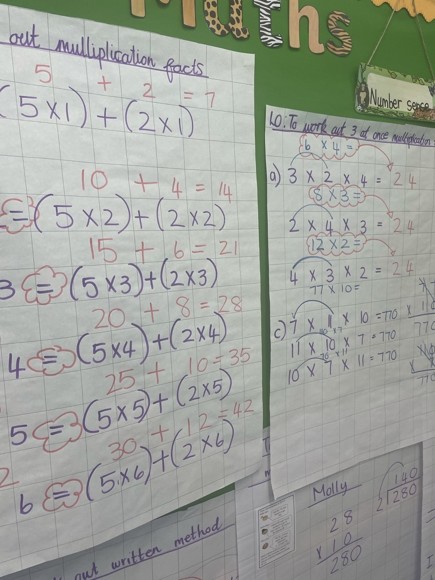 Maths
Number sense
out multiplication facts
5 + 2 = 7
(5×1)+(2×1)
10 + 4 = 14
=(5×2)+(2×2)
15 + 6 = 21
3 =(5×3)+(2×3)
20 + 8 = 28
4 =(5×4)+(2×4)
25 + 10 = 35
5 =(5×5)+(2×5)
30 + 12 = 42
6 =(5×6)+(2×6)
LO: To work out 3 at once multiplication
6 × 4 =
a) 3 × 2 × 4 = 24
8 × 3 =
2 × 4 × 3 = 24
12 × 2 =
4 × 3 × 2 = 24
77 × 10 =
c) 7 × 11 × 10 = 770
11 × 10 × 7 = 770
10 × 7 × 11 = 770
out written method
Molly
28
× 10
280
140
2 280